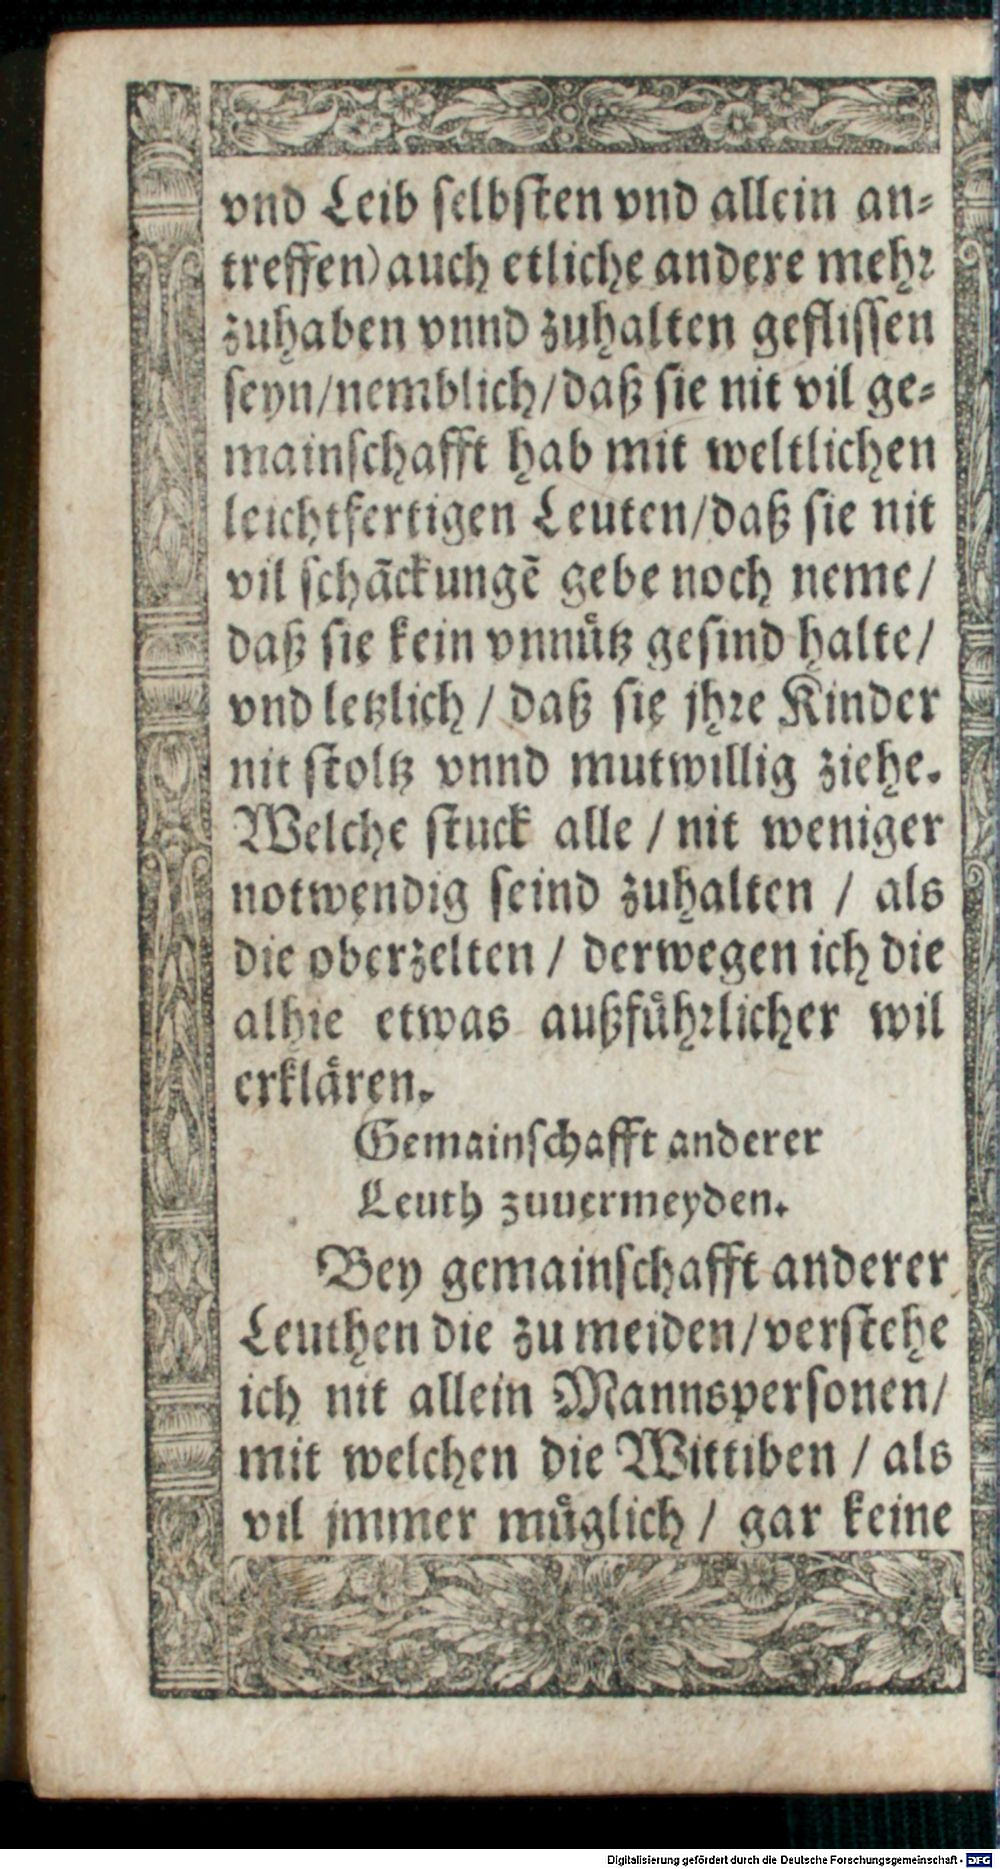 vnd Leib selbsten vnd allein an⸗
treffen) auch etliche andere mehr
zuhaben vnnd zuhalten geflissen
seyn/nemblich/daß sie nit vil ge⸗
mainschafft hab mit weltlichen
leichtfertigen Leuten/daß sie nit
vil schāckungē gebe noch neme/
daß sie kein vnnütz gesind halte/
vnd letzlich / daß sie jhre Kinder
nit stoltz vnnd mutwillig ziehe.
Welche stuck alle / nit weniger
notwendig seind zuhalten / als
die oberzelten / derwegen ich die
alhie etwas außführlicher wil
erklären.
Gemainschafft anderer
Leuth zuuermeyden.
Bey gemainschafft anderer
Leuthen die zu meiden/verstehe
ich nit allein Mannspersonen/
mit welchen die Wittiben / als
vil jmmer müglich / gar keine
Digitalisierung gefördert durch die Deutsche Forschungsgemeinschaft - DFG